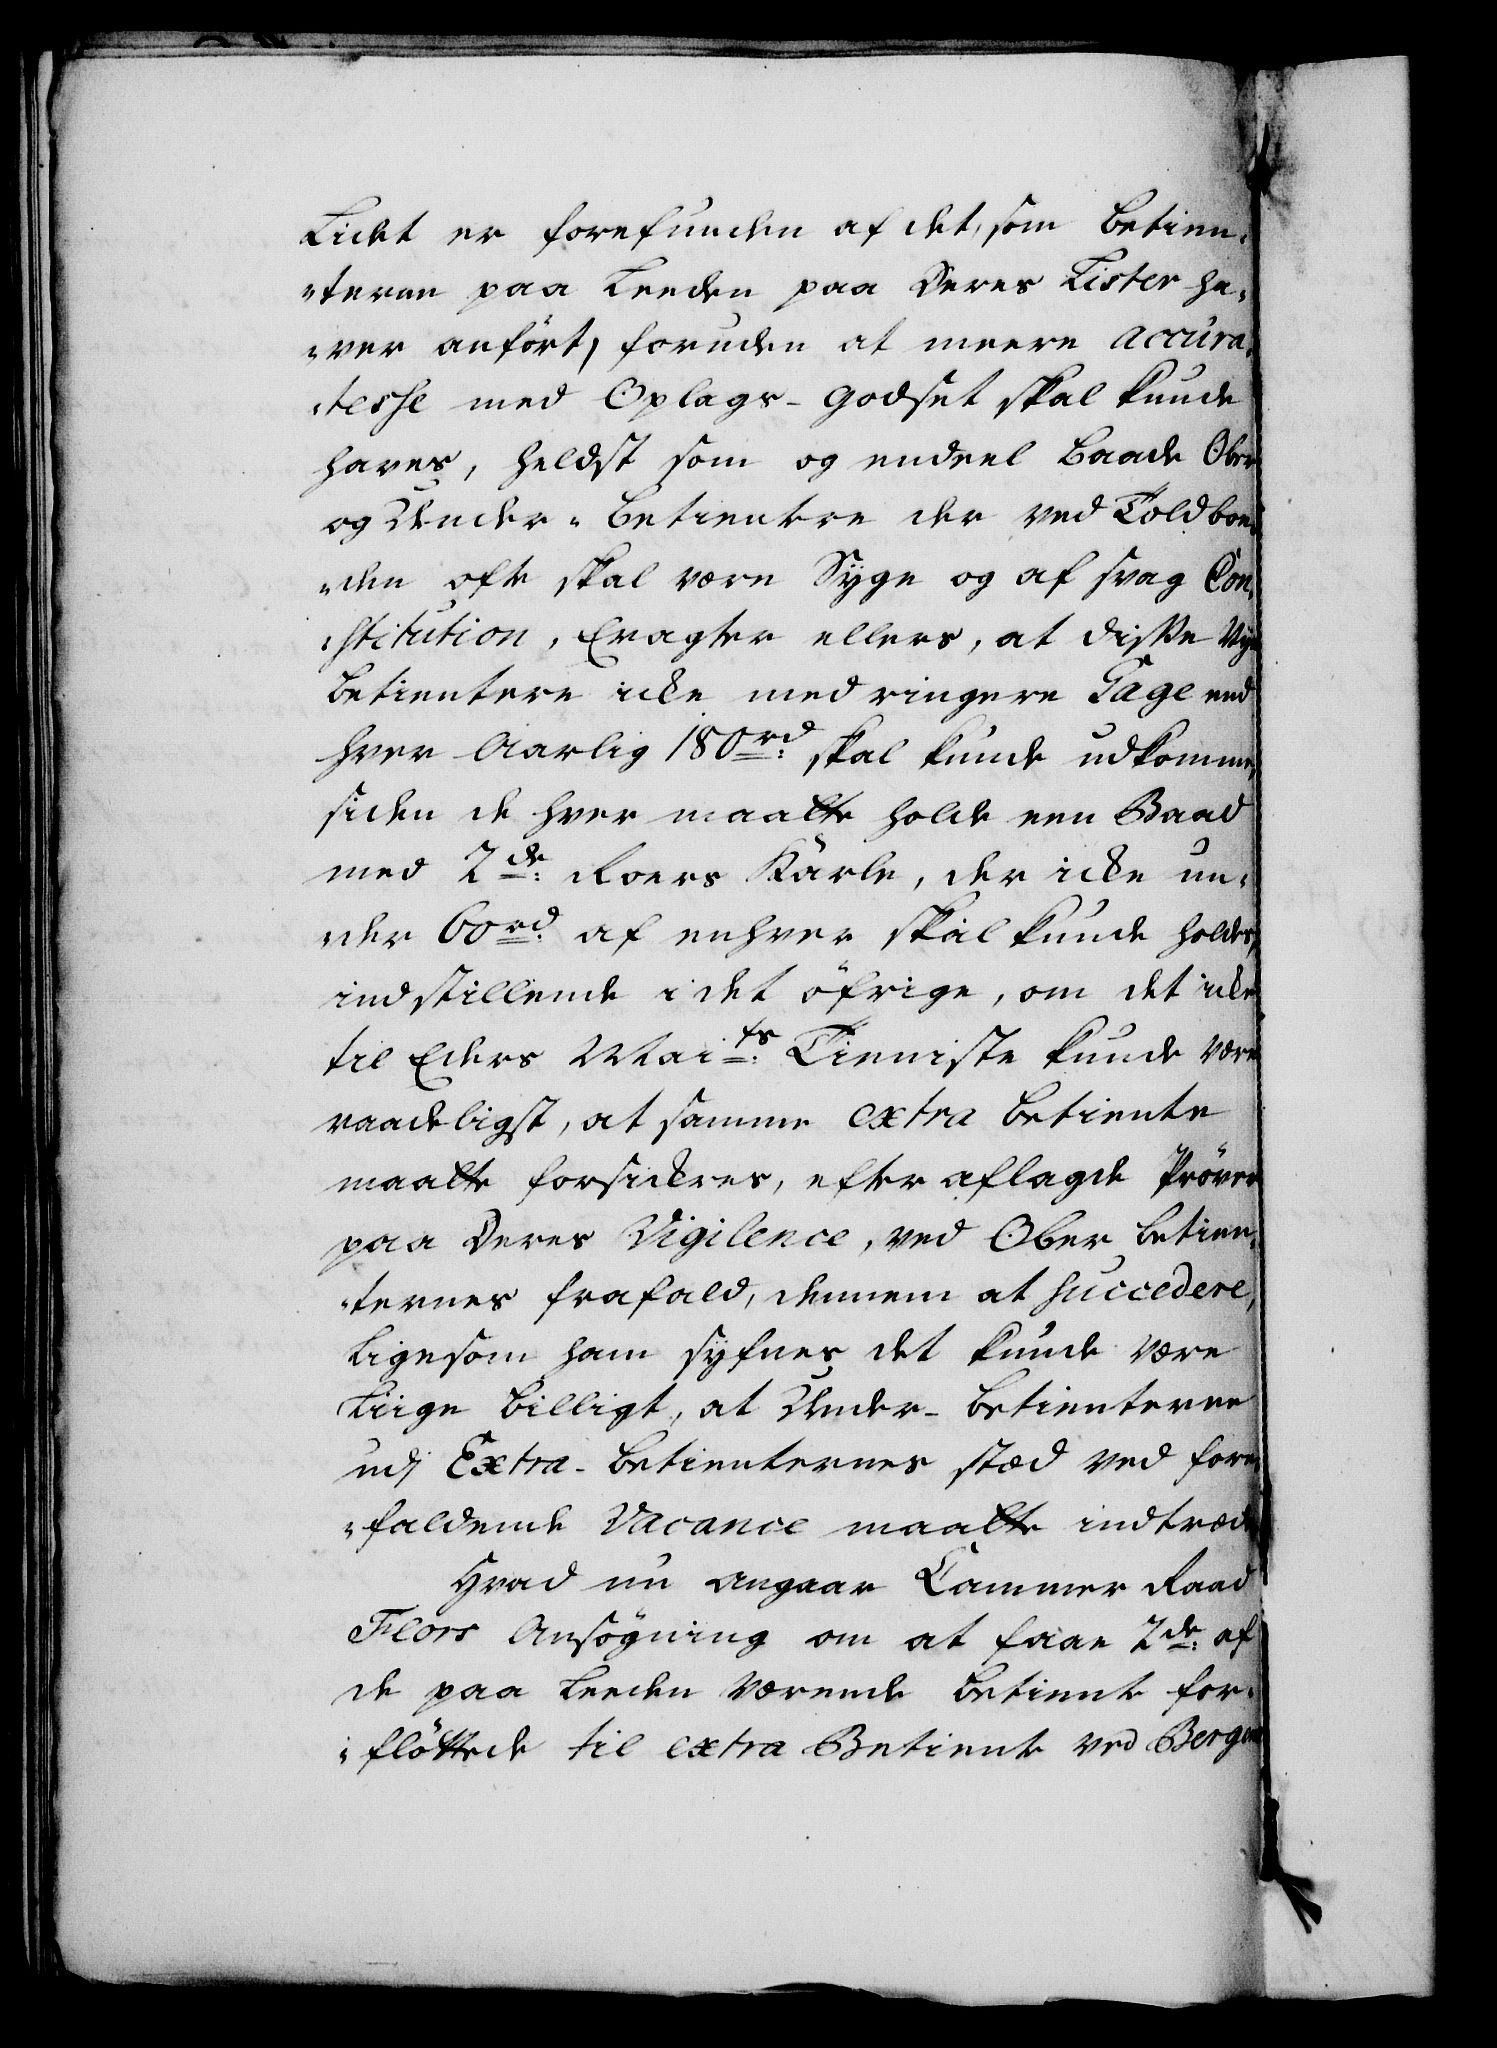 Lidet er forefunden af det, som betien-
-terne paa Leeden paa Deres Lister ha-
-ver anført, foruden at meere accura-
-tesse med Oplags-Godset skal kunde
haves, heldst som og endeel baade Ober
og Under-betientere der ved Toldboe-
-den ofte skal være Syge og af svag Con-
-stitution, Eragter ellers, at disse Nye
betientere icke med ringere Gage end
hver Aarlig 180 rd: skal kunde udkomme,
siden de hver maatte holde een Baad
med 2de: Roers Karle, der icke un-
-der 60 rd: af enhver skal kunde holdes,
indstillende i det öfrige, om det icke
til Eders Maits: Tieniste kunde være
raadeligst, at samme extra betiente
maatte forsickres, efter aflagde Pröver
paa Deres Vigilence, ved Ober betien-
-ternes frafald, dennem at succedere,
Ligesom ham syfnes det kunde være
Liige billigt, at Under-betienterne
udj Extra-betienternes stæd ved fore-
-faldende Vacance maatte indtræde
Hvad nu angaar Cammer Raad
Flors Ansögning om at faae 2de: af
de paa Leeden værende betiente for-
-flöttede til extra Betiente ved Bergen